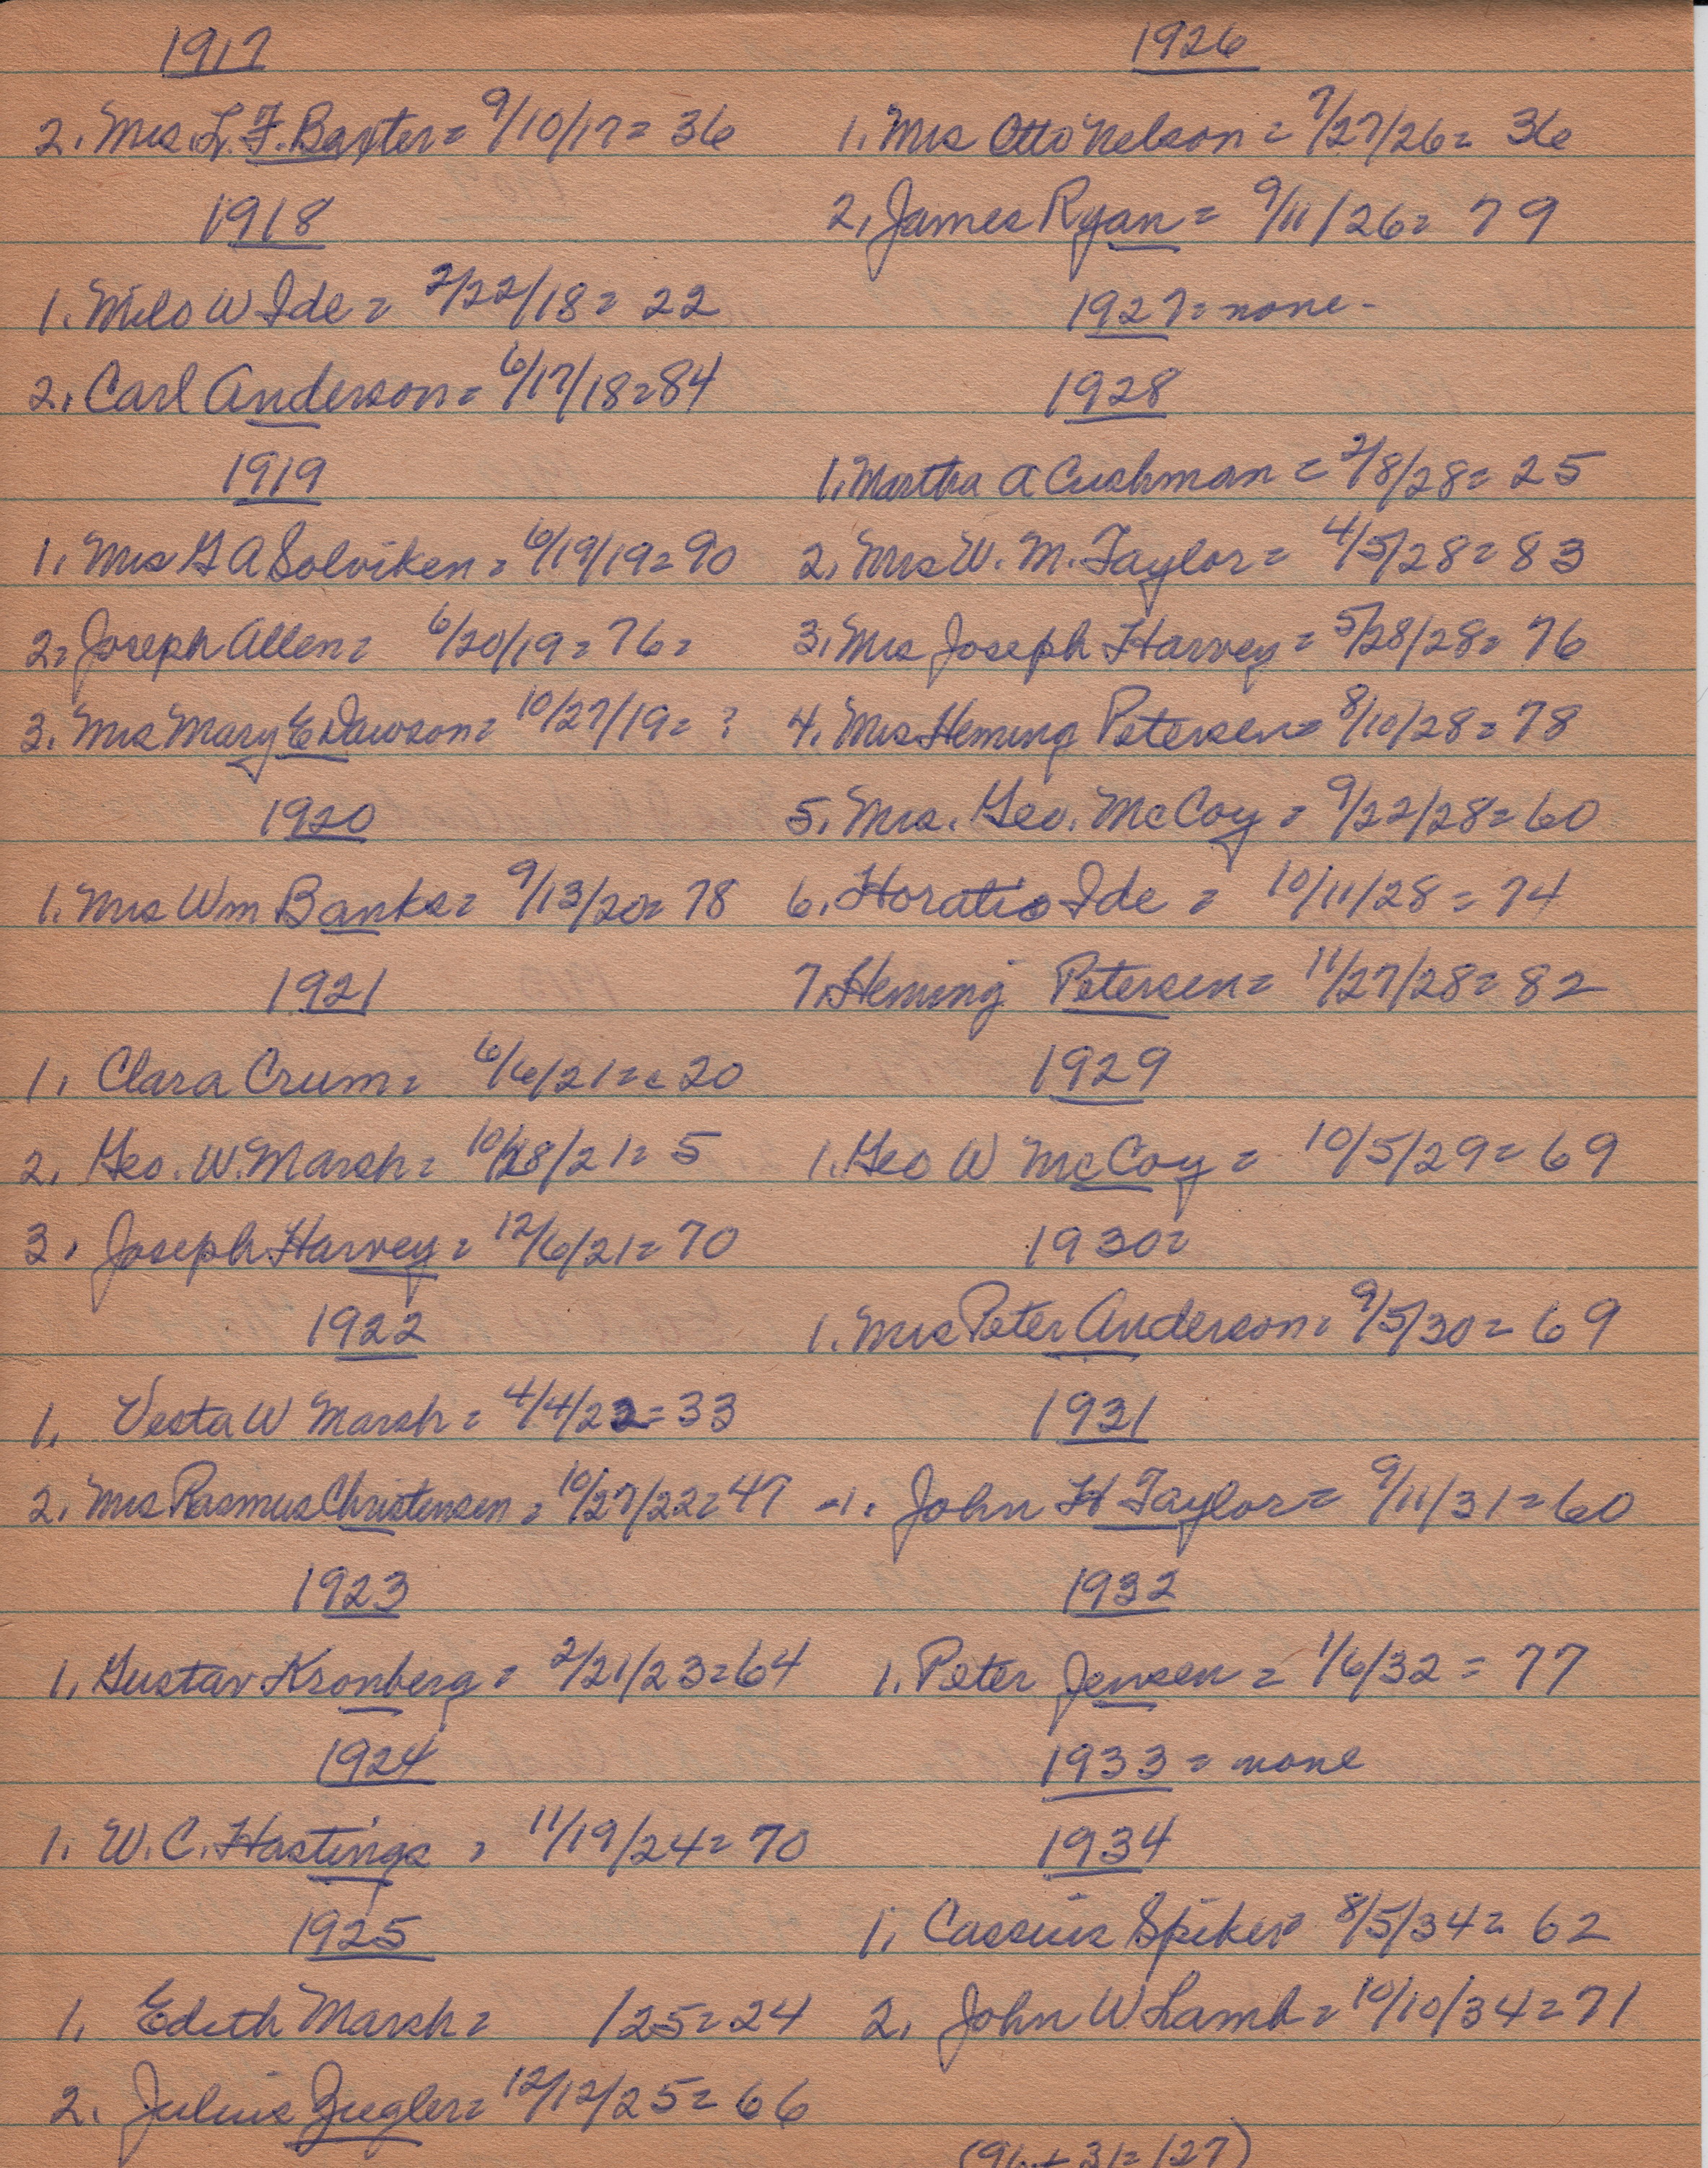 1917
2. Mrs. L. F. Baxter = 9/10/17 = 36
1918
1. Milo W Ide = 2/22/18 = 22
2. Carl Anderson = 6/17/18 = 84
1919
1. Mrs G A Solviken = 6/19/19 = 90
2. Joseph Allen = 6/20/19 = 76 =
3. Mrs Mary E Dawson = 10/27/19 = ?
1920
1. Mrs Wm Banks = 9/13/20 = 78
1921
1. Clara Crum = 6/6/21 = c 20
2. Geo. W. Marsh = 10/28/21 = 5
3. Joseph Harvey = 12/6/21 = 70
1922
1. Vesta W Marsh = 4/4/22 = 33
2. Mrs Rasmus Christensen = 10/27/22 = 47
1923
1. Gustav Kronberg = 2/21/23 = 64
1924
1. W. C. Hastings = 11/19/24 = 70
1925
1. Edith Marsh = /25 = 24
2. Julius Zugler = 12/12/25 = 66
1926
1. Mrs Otto Nelson = 7/27/26 = 36
2. James Ryan = 9/11/26 = 79
1927 = none -
1928
1. Martha A Cushman = 2/8/28 = 25
2. Mrs W. M. Taylor = 4/5/28 = 83
3. Mrs Joseph Harvey = 5/28/28 = 76
4. Mrs Heming Petersen = 8/10/28 = 78
5. Mrs. Geo. McCoy = 9/22/28 = 60
6. Horatio Ide = 10/11/28 = 74
7. Heming Petersen = 11/27/28 = 82
1929
1. Geo W McCoy = 10/5/29 = 69
1930 =
1. Mrs Peter Anderson = 9/5/30 = 69
1931
1. John H Taylor = 9/11/31 = 60
1932
1. Peter Jensen = 1/6/32 = 77
1933 = none
1934
1. Cassius Spiker = 8/5/34 = 62
2. John W Lamb = 10/10/34 = 71
(96 + 31 = 127)